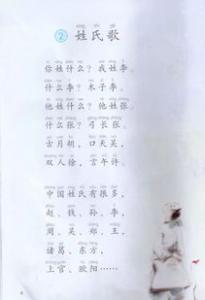 ② 姓氏歌
你姓什么？我姓李。
什么李？木子李。
他姓什么？他姓张。
什么张？弓长张。
古月胡，口天吴，
双人徐，言午许。
中国姓氏有很多，
赵、钱、孙、李，
周、吴、郑、王，
诸葛、东方，
上官、欧阳……